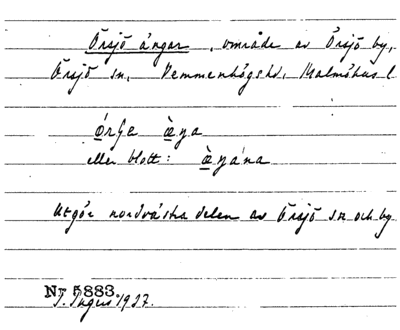 Örsjö ängar, område av Örsjö by,
Örsjö sn, Vemmenhögs hd, Malmöhus l
ørʃa æŋa
eller blott: æŋana
Utgör nordvästra delen av Örsjö sn och by
Nr 5883.
1927.